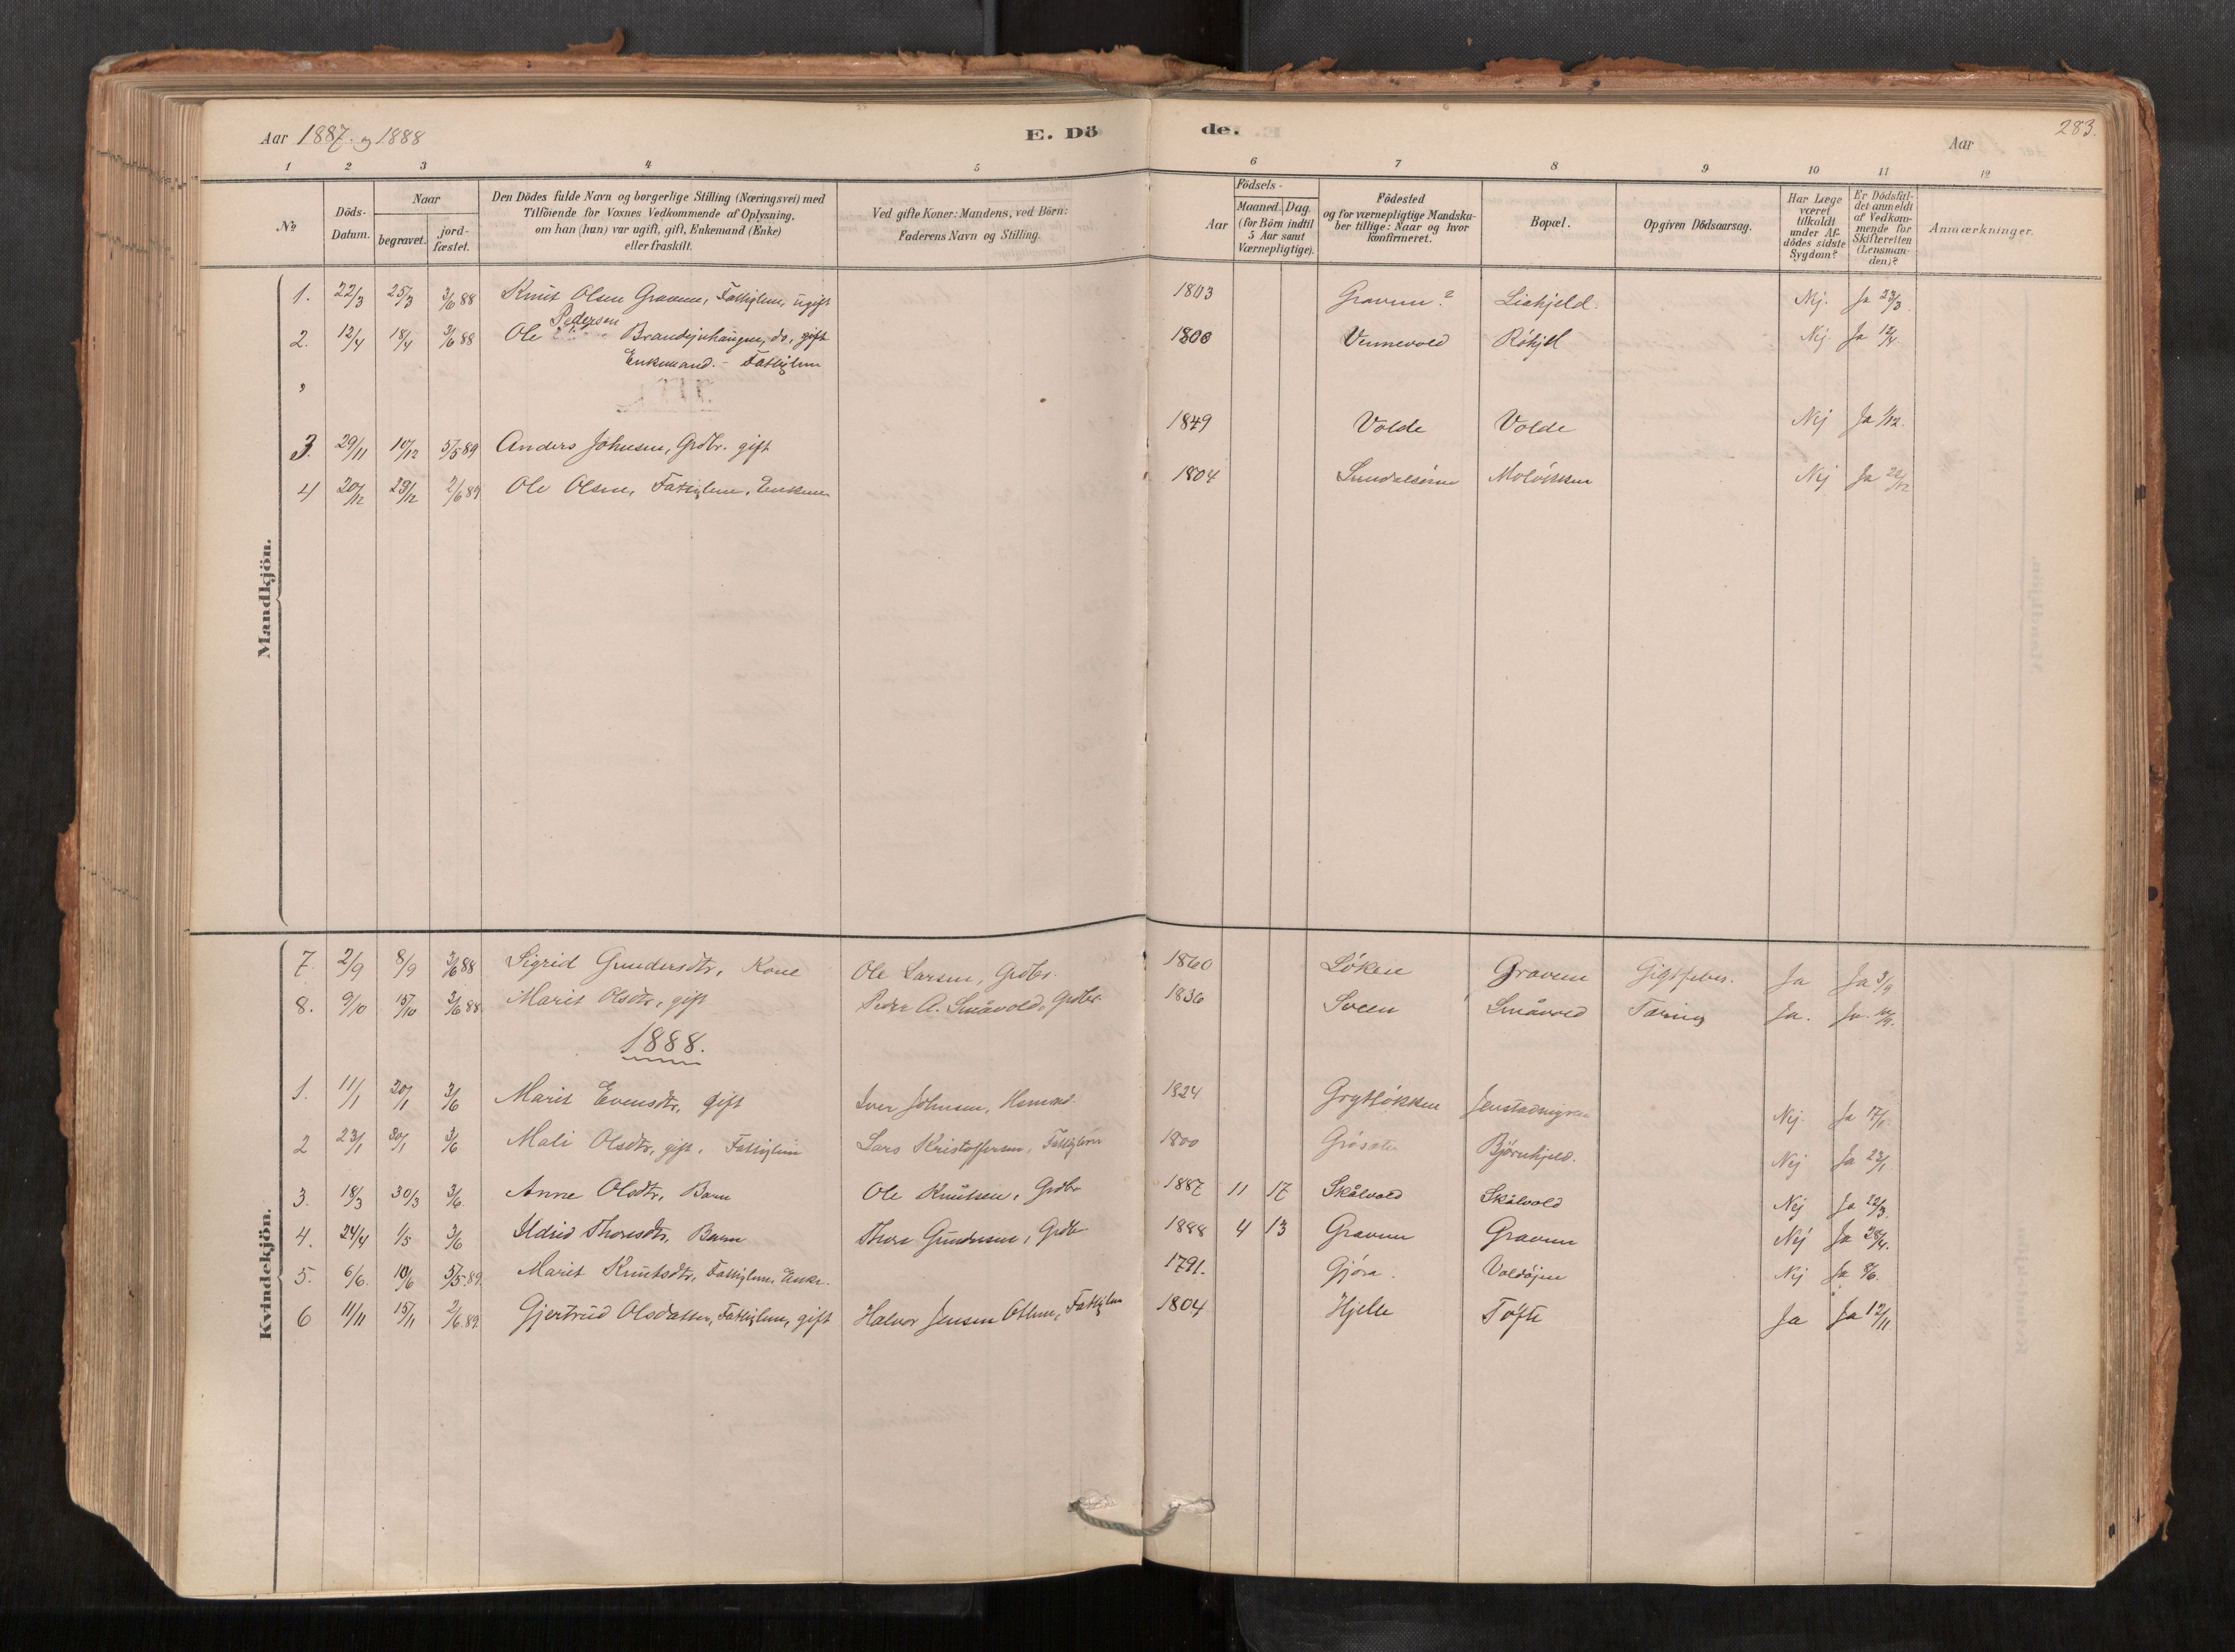 Aar 1887. og 1888
E. Döde.
Aar
283.
1 2 3 4 5 6 7 8 9 10 11 12
No
Döds-Datum.
Naar
begravet.
jord-fæstet.
Den Dödes fulde Navn og borgerlige Stilling (Næringsvei) med
Tilföiende for Voxnes Vedkommende af Oplysning,
om han (hun) var ugift, gift, Enkemand (Enke)
eller fraskilt.
Ved gifte Koner: Mandens, ved Börn:
Faderens Navn og Stilling.
Födsels-
Aar
Maaned. Dag.
(for Börn indtil
5 Aar samt
Værnepligtige).
Födested
og for værnepligtige Mandska-
ber tillige: Naar og hvor
konfirmeret.
Bopæl.
Opgiven Dödsaarsag.
Har Læge
været
tilkaldt
under Af-
dödes sidste
Sygdom?
Er Dödsfal-
det anmeldt
af Vedkom-
mende for
Skifteretten
(Lensman-
den)?
Anmærkninger.
Mandkjön.
1. 22/3 25/3 3/6 88 Knut Olsen Gravem, Fattiglem, ugift 1803 Gravem? Liahjeld. Nej. Ja 23/3.
2. 12/4 18/4 3/6 88 Ole Pedersen Brandsjvhaugen, do, gift 1800 Vennevold Röhjel Nej. Ja 12/4.
Enkemand. - Fattiglem
3. 29/11 10/12 5/5 89 Anders Johnsen, Grdbr. gift 1849 Volde Volde Nej Ja 1/12.
4 20/12 29/12 2/6 89 Ole Olsen, Fattiglem, Enkem 1804 Sundalsören Molökken Nej Ja 20/12
Kvindekjön.
7. 2/9 8/9 3/6 88 Sigrid Gundersdtr, Kone Ole Larsen, Grdbr. 1860 Löken Gravem Gigtfeber. Ja Ja 3/9
8. 9/10 15/10 3/6 88 Marit Olsdtr, gift Peder A. Småvold, Grdbr. 1836 Sveen Småvold Tæring Ja. Ja.
1888.
1. 11/1 20/1 3/6 Marit Evensdtr, gift Iver Johnsen, Husmd. 1824 Grytlökken Jenstadmyren Nej. Ja 17/1
2 23/1 30/1 3/6 Mali Olsdtr, gift, Fattiglem Lars Kristoffersen, Fattiglem 1800 Gröseter Björnhjeld. Nej Ja 23/1
3. 18/3 30/3 3/6. Anne Olsdtr, Barn Ole Knutsen, Grdbr 1887 11 17 Skålvold Skålvold Nej Ja 22/3.
4. 24/4 1/5 3/6 Ildrid Thoresdtr, Barn Thore Gundersen, Grdbr 1888 4 13 Gravem Gravem Nej Ja 28/4.
5. 6/6. 10/6 5/5.89. Marit Knutsdtr, Fattiglem, Enke. 1791. Gjöra. Voldöjen Nej Ja 8/6.
6 11/11 15/11 2/6.89. Gjertrud Olsdatter, Fattiglem, gift Halvor Jensen Ottem, Fattiglem 1804 Hjelle Töfte Ja Ja 12/11